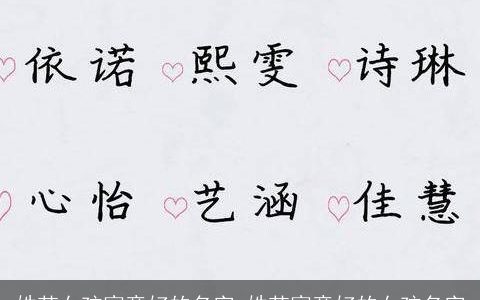 依诺 熙雯 诗琳
心怡 艺涵 佳慧
女孩寓意好的名字 寓意好的女孩名字